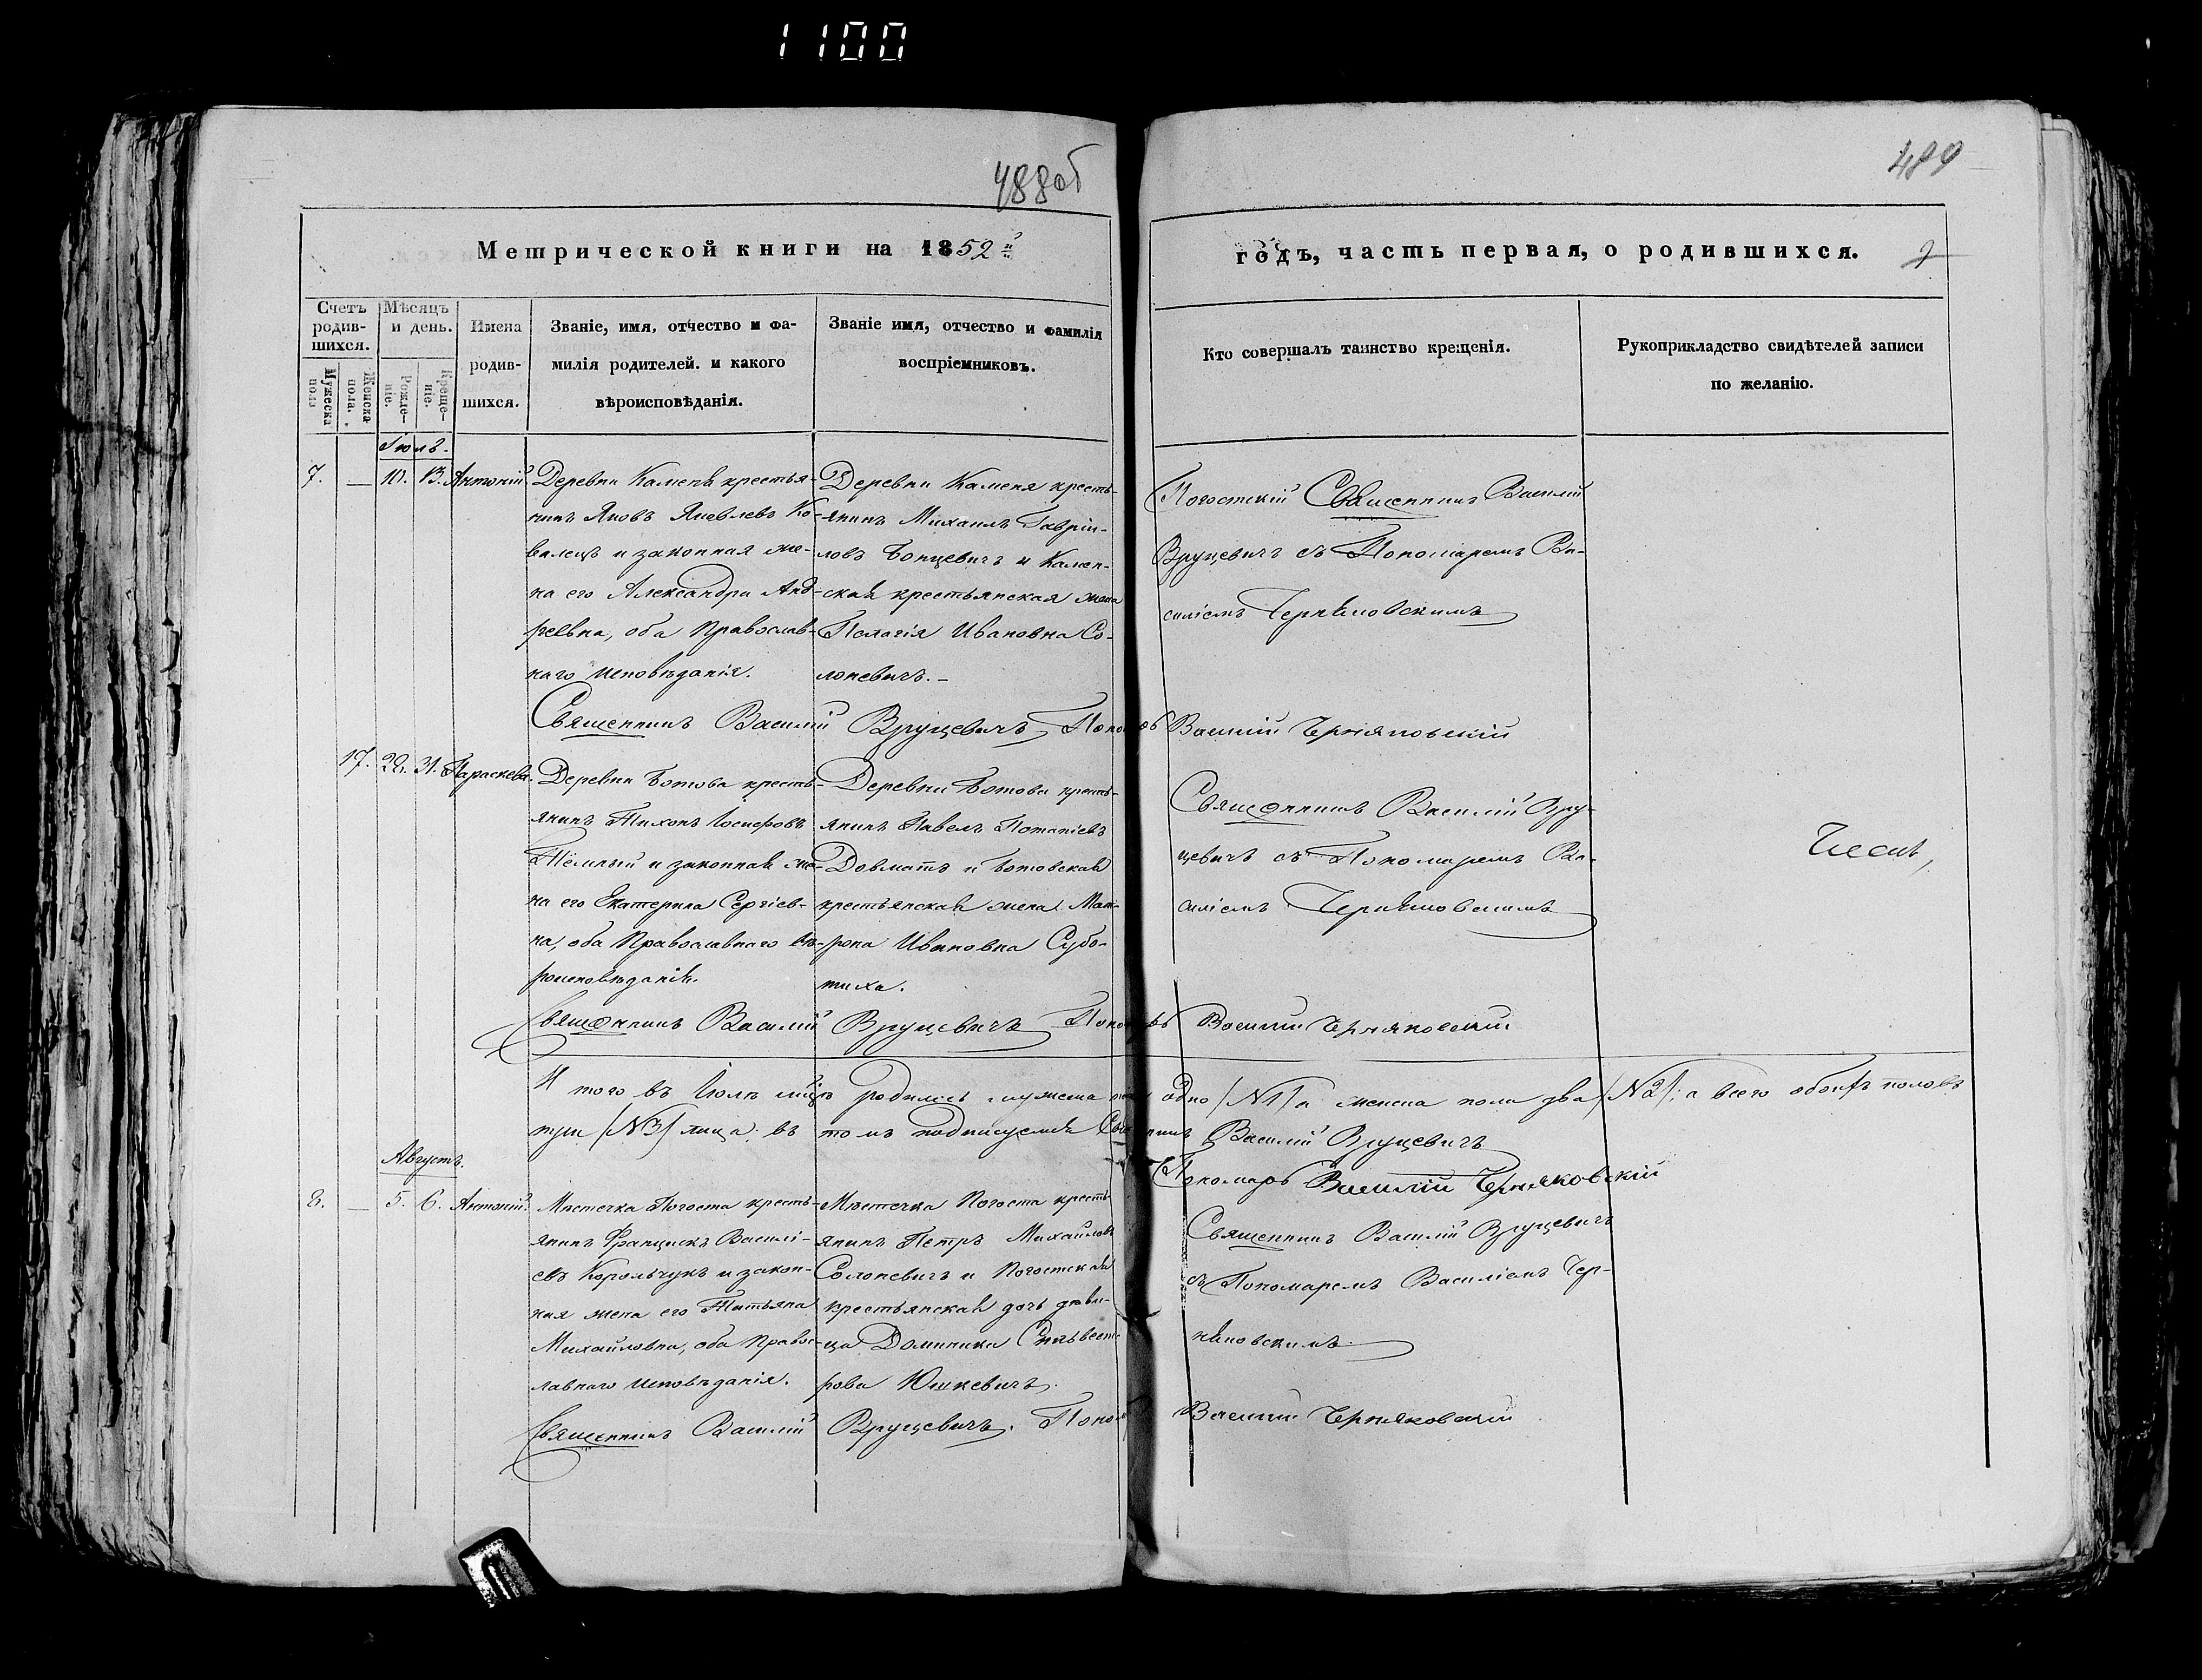 1100
488об
489
Метрической книги на 1852й
годъ, часть первая, о родившихся.
Счетъ родив-шихся.
Мужеска пола
Женска пола.
Мѣсяцъ и день.
Рожде-ніе.
Креще-ніе.
Имена
родив-
шихся.
Званіе, имя, отчество и фа-
милія родителей. и какого
вѣроисповѣданія.
Званіе имя, отчество и фамилія
воспріемниковъ.
Кто совершалъ таинство крещенія.
Рукоприкладство свидѣтелей записи
по желанію.
Іюль.
7. — 10. 13. Антоній.
Деревни Камень крестья-
нинъ Яковъ Яковлевъ Ко-
валецъ и законная же-
на его Александра Анд-
реевна, оба Православ-
наго исповѣданія.
Деревни Каменя кресть-
янинъ Михаилъ Гаврiи-
ловъ Бонцевичъ и Камен-
ская крестьянская жена
Пелагія Ивановна Со-
лоневичъ.-
Погостскій Священникъ Василій
Вруцевичъ съ Пономаремъ Ва-
силіемъ Черняковскимъ
Священникъ Василій Вруцевичъ
Василій Черняковскій
17. 28. 31. Параскева.
Деревни Ботова кресть-
янинъ Тихонъ Іосифовъ
Тёмный и законная же-
на его Екатерина Сергіев-
на, оба Православнаго вѣ-
роисповѣданія.
Деревни Ботова кресть-
янинъ Павелъ Потапіевъ
Довматъ и Ботовская
крестьянская жена Мат-
рона Ивановна Субо-
тиха.
Священникъ Василій Вру-
цевичъ съ Пономаремъ Ва-
силіемъ Черняковскимъ
Священникъ Василій Вруцевичъ
Василій Черняковскій
И того въ Іюлѣ мцѣ родилось мужеска одно /№1/ а женска пола два /№2/; а всего обоихъ половъ
три /№3/ лица; въ томъ подписуемся Василій Вруцевичъ
Пономарь Василій Черняковскій
Августъ.
8. — 5. 6. Антоній.
Мѣстечка Погоста кресть-
янинъ Францискъ Василі-
евъ Корольчукъ и закон-
ная жена его Татьяна
Михайловна, оба Правос-
лавнаго исповѣданія.
Мѣстечка Погоста кресть-
янинъ Петръ Михайловъ
Солоневичъ и Погостская
крестьянская дочь дѣви-
ца Доминика Сильвест-
рова Юшкевичъ.
Священникъ Василій Вруцевичъ
съ Пономаремъ Василіемъ Чер-
няковскимъ.
Священникъ Василій Вруцевичъ.
Василій Черняковскій